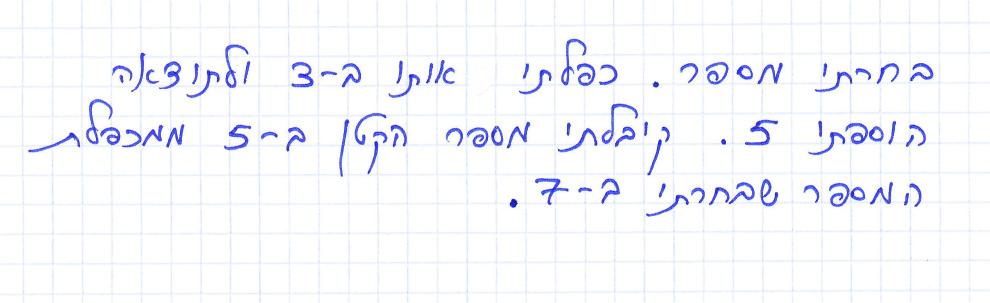 בחרתי מספר. כפלתי אותו ב-3 ולתוצאה
הוספתי 5. קיבלתי מספר הקטן ב-5 ממכפלת
המספר שבחרתי ב-7.